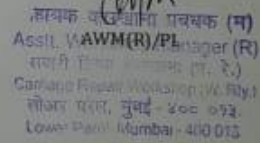 सहायक कारखाना प्रबंधक (म)
Assit. W AWM(R)/PL nager (R)
Carriage Repair Workshop (W. Rly.)
लोअर परल, मुंबई - ४०० ०१३.
Lower Parel Mumbai - 400 013